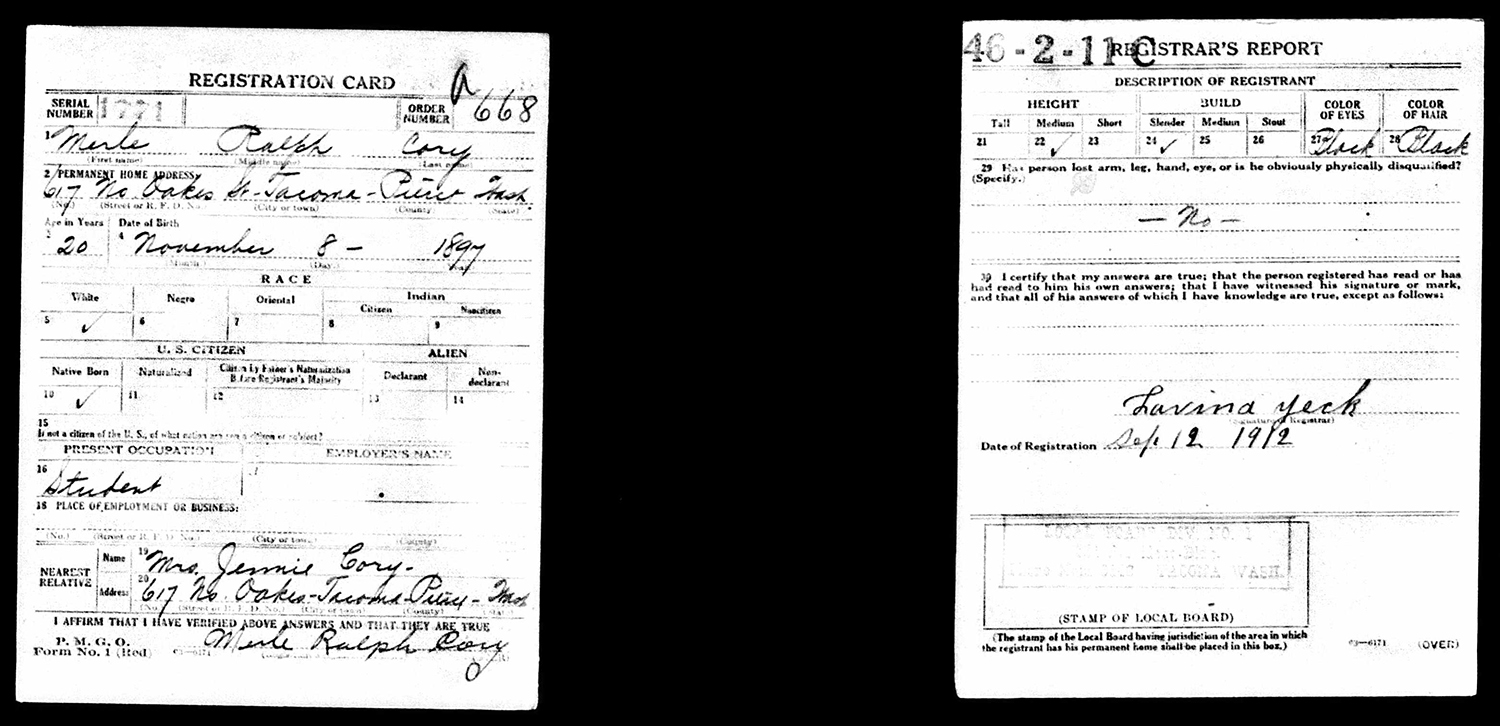 REGISTRATION CARD
SERIAL NUMBER 1771 ORDER NUMBER A 668
1 Merle Ralph Cory
(First name) (Middle name) (Last name)
2 PERMANENT HOME ADDRESS:
617 No. Oakes St - Tacoma - Pierce Wash.
(No.) (Street or R. F. D. No.) (City or town) (County) (State)
Age in Years Date of Birth
3 20 4 November 8 - 1897
(Month) (Day) Year
RACE
White Negro Oriental Indian
Citizen Noncitizen
5 ✓ 6 7 8 9
U. S. CITIZEN ALIEN
Native Born Naturalized Citizen by Father's Naturalization Before Registrant's Majority Declarant Non-declarant
10 ✓ 11 12 13 14
15
If not a citizen of the U. S., of what nation are you a citizen or subject?
PRESENT OCCUPATION EMPLOYER'S NAME
16 Student 17
18 PLACE OF EMPLOYMENT OR BUSINESS:
(No.) (Street or R. F. D. No.) (City or town) (County)
NEAREST RELATIVE Name 19 Mrs. Jennie Cory -
Address 20 617 No. Oakes - Tacoma - Pierce - Wash
(No.) (Street or R. F. D. No.) (City or town) (County) (State)
I AFFIRM THAT I HAVE VERIFIED ABOVE ANSWERS AND THAT THEY ARE TRUE
P. M. G. O.
Form No. 1 (Red) 03-6171 Merle Ralph Cory
46-2-11 C REGISTRAR'S REPORT
DESCRIPTION OF REGISTRANT
HEIGHT BUILD COLOR OF EYES COLOR OF HAIR
Tall Medium Short Slender Medium Stout
21 22 ✓ 23 24 ✓ 25 26 27 Black 28 Black
29 Has person lost arm, leg, hand, eye, or is he obviously physically disqualified?
(Specify.)
- No -
30 I certify that my answers are true; that the person registered has read or has
had read to him his own answers; that I have witnessed his signature or mark,
and that all of his answers of which I have knowledge are true, except as follows:
Lavina Yeck
(Signature of Registrar)
Date of Registration Sep. 12 1912
(STAMP OF LOCAL BOARD)
(The stamp of the Local Board having jurisdiction of the area in which
the registrant has his permanent home shall be placed in this box.)
03-6171 (OVER)